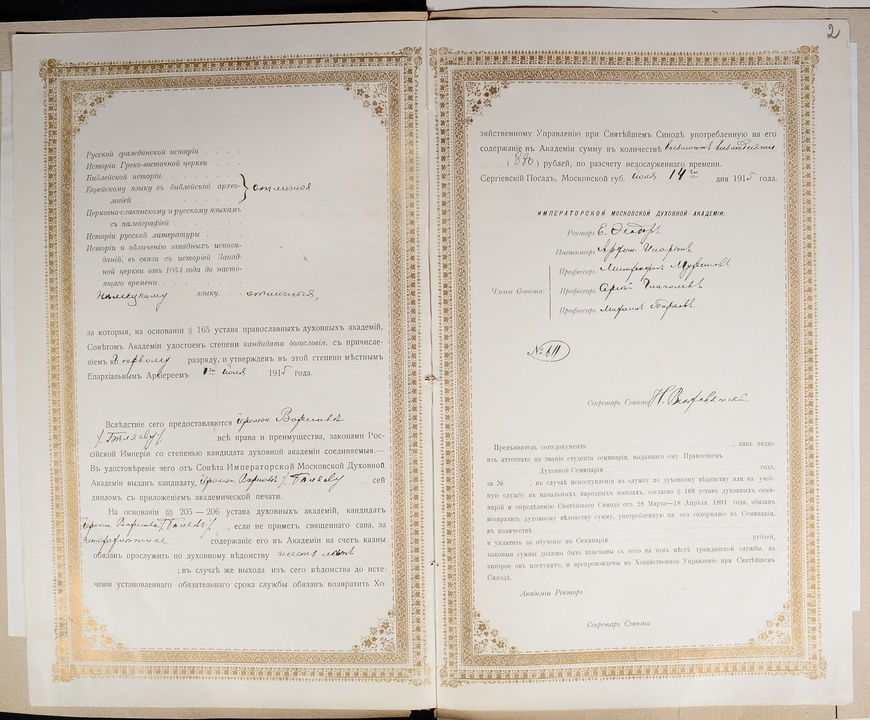 Русской гражданской исторіи . . . .
Исторіи Греко-восточной церкви . . . .
Библейской исторіи. . . . .
Еврейскому языку съ библейской архео-
логіей . . . . . } отличная
Церковно-славянскому и русскому языкамъ
съ палеографіей . . . .
Исторіи русской литературы . . . .
Исторіи и обличенію западныхъ исповѣ-
даній, въ связи съ исторіей Запад-
ной церкви отъ 1054 года до насто-
ящаго времени. . . . .
Нѣмецкому языку. . отличная,
за которыя, на основаніи § 165 устава православныхъ духовныхъ академій,
Совѣтомъ Академіи удостоенъ степени кандидата богословія, съ причисле-
ніемъ къ первому разряду, и утвержденъ въ этой степени мѣстнымъ
Епархіальнымъ Архіереемъ 1915 года.
Вслѣдствіе сего предоставляются іеромон. Варлааму
/Бѣляеву/ всѣ права и преимущества, законами Рос-
сійской Имперіи со степенью кандидата духовной академіи соединяемыя.—
Въ удостовѣреніе чего отъ Совѣта Императорской Московской Духовной
Академіи выданъ кандидату, іеромон. Варлааму /Бѣляеву/ сей
дипломъ съ приложеніемъ академической печати.
На основаніи §§ 205—206 устава духовныхъ академій, кандидатъ
іеромон. Варлаамъ /Бѣляевъ/, если не приметъ священнаго сана, за
содержаніе его въ Академіи на счетъ казны
обязанъ прослужить по духовному вѣдомству шесть лѣтъ
; въ случаѣ же выхода изъ сего вѣдомства до исте-
ченія установленнаго обязательнаго срока службы обязанъ возвратить Хо-
2
зяйственному Управленію при Святѣйшемъ Синодѣ употребленную на его
содержаніе въ Академіи сумму въ количествѣ восемьсотъ
) рублей, по разсчету недослуженнаго времени.
Сергіевскій Посадъ, Московской губ. іюля 14го дня 1915 года.
ИМПЕРАТОРСКОЙ МОСКОВСКОЙ ДУХОВНОЙ АКАДЕМІИ:
Ректоръ Е. Ѳеодоръ.
Инспекторъ Архим. Иларіонъ
Профессоръ Митрофанъ Муретовъ
Члены Совѣта: Профессоръ Сергѣй Глаголевъ
Профессоръ Михаилъ Тарѣевъ.
№ 611
Секретарь Совѣта Н. Всехсвятскій.
Предъявитель сего документа , какъ видно
изъ аттестата на званіе студента семинаріи, выданнаго ему Правленіемъ
Духовной Семинаріи года,
за № , въ случаѣ непоступленія на службу по духовному вѣдомству или на учеб-
ную службу въ начальныхъ народныхъ школахъ, согласно § 169 устава духовныхъ семи-
нарій и опредѣленію Святѣйшаго Синода отъ 28 Марта—18 Апрѣля 1891 года, обязанъ
возвратить духовному вѣдомству сумму, употребленную на его содержаніе въ Семинаріи,
въ количествѣ
и уплатить за обученіе въ Семинаріи рублей,
каковыя суммы должны быть взысканы съ него на томъ мѣстѣ гражданской службы, на
которое онъ поступитъ, и препровождены въ Хозяйственное Управленіе при Святѣйшемъ
Синодѣ.
Академіи Ректоръ
Секретарь Совѣта